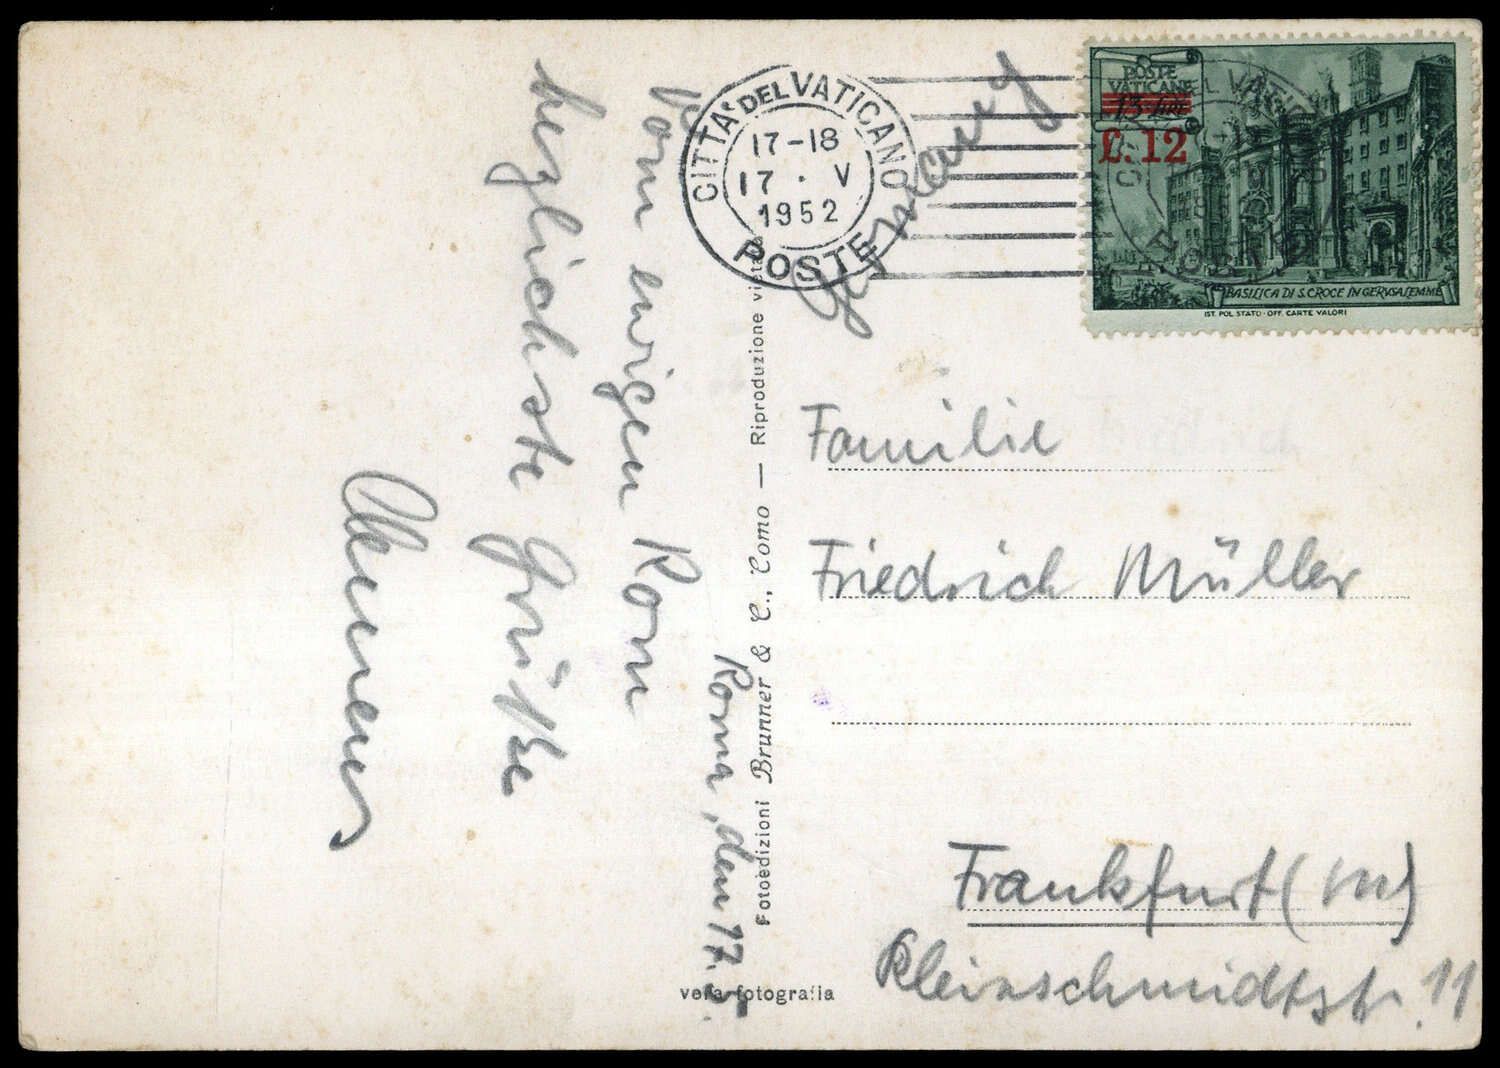 Roma, den 17. 5.
Vom ewigen Rom
herzlichste Grüße
Fotoedizioni Brunner & C., Como — Riproduzione vietata
vera fotografia
CITTA' DEL VATICANO
17-18
17 · V
1952
POSTE
Germany
POSTE
VATICANE
13 lire
£. 12
BASILICA DI S. CROCE IN GERVSALEMME
IST. POL. STATO · OFF. CARTE VALORI
Familie
Friedrich Müller
Frankfurt (M)
Kleinschmidtstr. 11